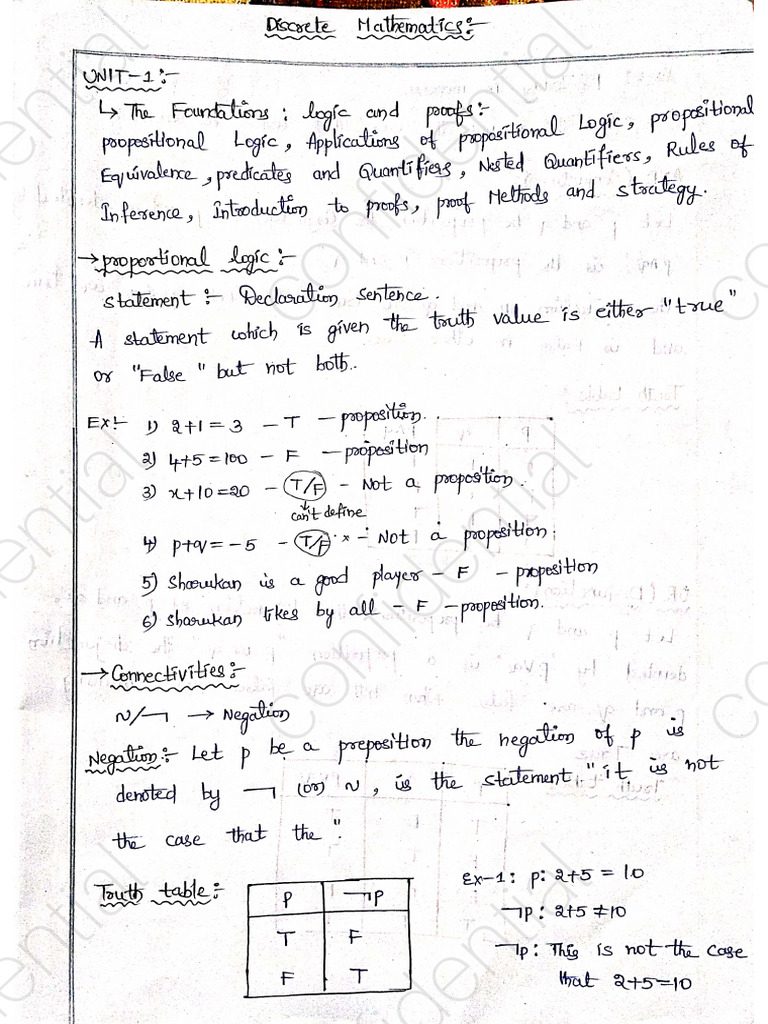 Discrete Mathematics:-
UNIT-1:-
↳ The Foundations: logic and proofs:-
propositional Logic, Applications of propositional Logic, propositional
Equivalence, predicates and Quantifiers, Nested Quantifiers, Rules of
Inference, Introduction to proofs, proof Methods and strategy.
→ proportional logic:-
statement:- Declaration sentence.
A statement which is given the truth value is either "true"
or "False" but not both.
Ex:- 1) 2+1=3 - T - proposition.
2) 4+5=100 - F - proposition
3) x+10=20 - T/F - Not a proposition.
can't define
4) p+q=-5 - T/F x - Not a proposition.
5) Sharukan is a good player - F - proposition
6) Sharukan likes by all - F - proposition.
→ Connectivities:-
~/¬ → Negation
Negation:- Let p be a preposition the negation of p is
denoted by ¬ (or) ~, is the statement, "it is not
the case that the".
Truth table:-
P ¬P
T F
F T
Ex-1: p: 2+5=10
¬p: 2+5≠10
¬p: This is not the case
that 2+5=10
confidential
confidential